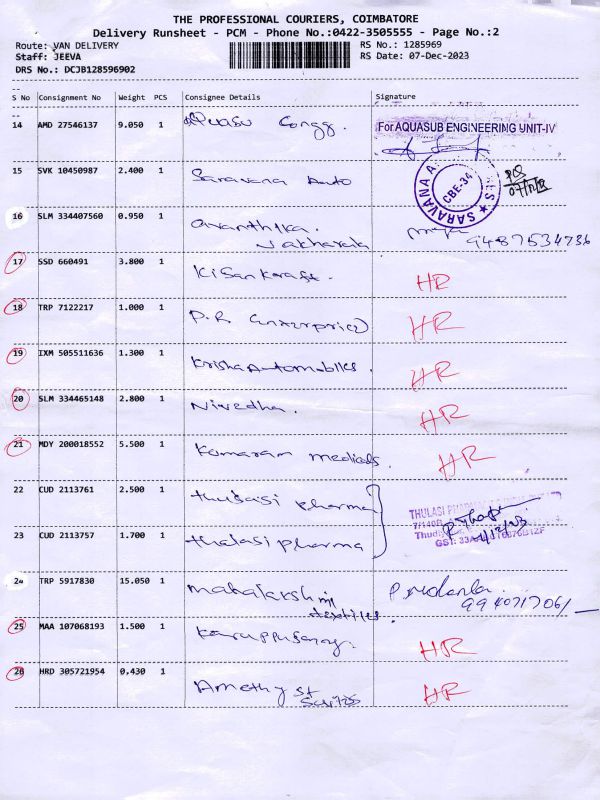 THE PROFESSIONAL COURIERS, COIMBATORE
Delivery Runsheet - PCM - Phone No.:0422-3505555 - Page No.:2
Route: VAN DELIVERY
RS No.: 1285969
Staff: JEEVA
RS Date: 07-Dec-2023
DRS No.: DCJB128596902
S No Consignment No Weight PCS Consignee Details Signature
14 AMD 27546137 9.050 1
For AQUASUB ENGINEERING UNIT-IV
15 SVK 10450987 2.400 1 Saravana Auto
SARAVANA CBE-34
16 SLM 334407560 0.950 1 avanthika.
9487534736
17 SSD 660491 3.800 1 Kisankraft. HR
18 TRP 7122217 1.000 1 P.R Enterprice) HR
19 IXM 505511636 1.300 1 Krisha Automobiles. HR
20 SLM 334465148 2.800 1 Nivedha. HR
21 MDY 200018552 5.500 1 Kumaram medicals. HR
22 CUD 2113761 2.500 1 thulasi pharma
THULASI
23 CUD 2113757 1.700 1 thulasi pharma
24 TRP 5917830 15.050 1 mahalakshmi
textiles.
25 MAA 107068193 1.500 1 Karuppusamy. HR
26 HRD 305721954 0.430 1 Amethyst HR